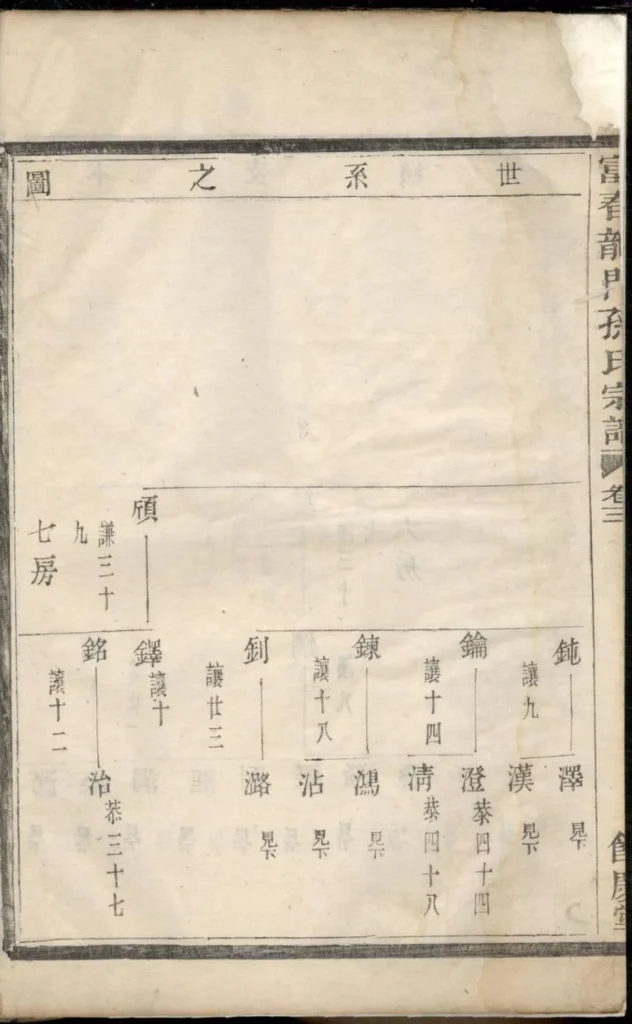 富春龍門孫氏宗譜
卷三
餘慶堂
世系之圖
頎
謙三十九
七房
鈍
讓九
鑰
讓十四
鍊
讓十八
釗
讓廿三
鐸
讓十
銘
讓十二
澤
見下
漢
見下
澄
恭四十四
清
恭四十八
鴻
見下
沾
見下
潞
見下
治
恭三十七